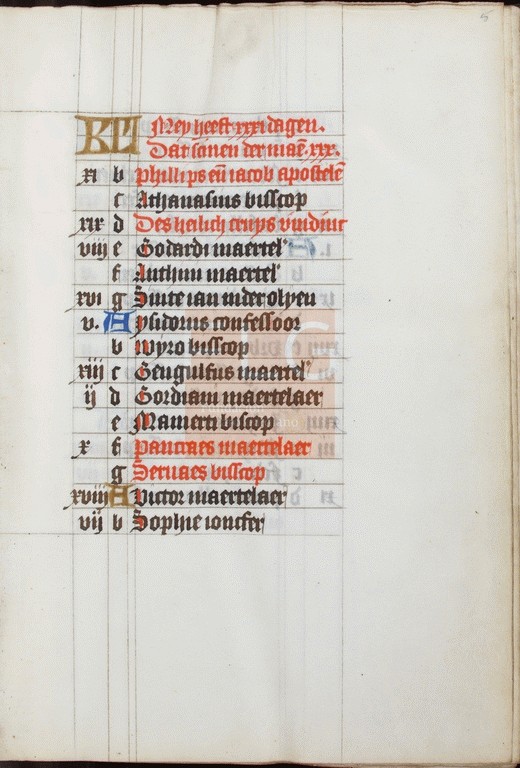 KL Mey heeft xxxi dagen.
Dat scinen der maē. xxx.
xi b Phillips eñ iacob apostelē
c Athanasius bisscop
xix d Des heilich cruys vindint
viij e Godardi maertel'
f Anthim maertel'
xvi g Sinte ian inder olyen
v. A ysidorus confessoor
b wyro bisscop
xiij c Gengulfus maertel'
ij d Gordiani maertelaer
e Mamerti biscop
x f Pancraes maertelaer
g Seruaes bisscop
xviij A Victor maertelaer
vij b Sophie ioncfer
5